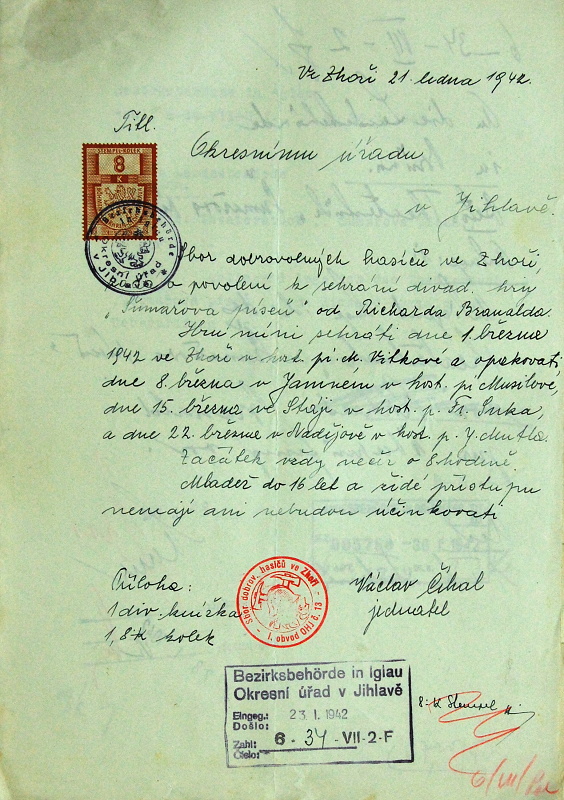 Ve Zhoři 21. ledna 1942.
Titl.
Okresnímu úřadu
v Jihlavě.
STEMPEL-KOLEK
8
K
Bezirksbehörde
Okresní úřad
v JIHLAVĚ
Sbor dobrovolných hasičů ve Zhoři,
o povolení k sehrání divad. hry
"Šumařova píseň" od Richarda Branalda.
Hru míní sehráti dne 1. března
1942 ve Zhoři v host. pí. M. Vítkové a opakovati
dne 8. března v Jamném v host. pí Musilové,
dne 15. března ve Stáji v host. p. Fr. Suka,
a dne 22. března v Nadějově v host. p. J. Mutla.
Začátek vždy večer o 8 hodině.
Mladež do 16 let a židé přístupu
nemají ani nebudou účinkovati
Příloha:
1 div. knížka
1, 8 K kolek
Sbor dobrov. hasičů ve Zhoři -
I. obvod OHJ č. 13
Václav Číhal
jednatel
Bezirksbehörde in Iglau
Okresní úřad v Jihlavě
Eingeg.:
Došlo: 23. I. 1942
Zahl:
Číslo: 6 - 34 - VII - 2 - F
8.-K Stempel